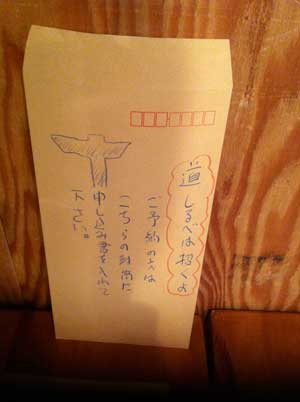 道しるべは招くよ
ご予約の人は
こちらの封筒に
申し込み書を入れて
下さい。